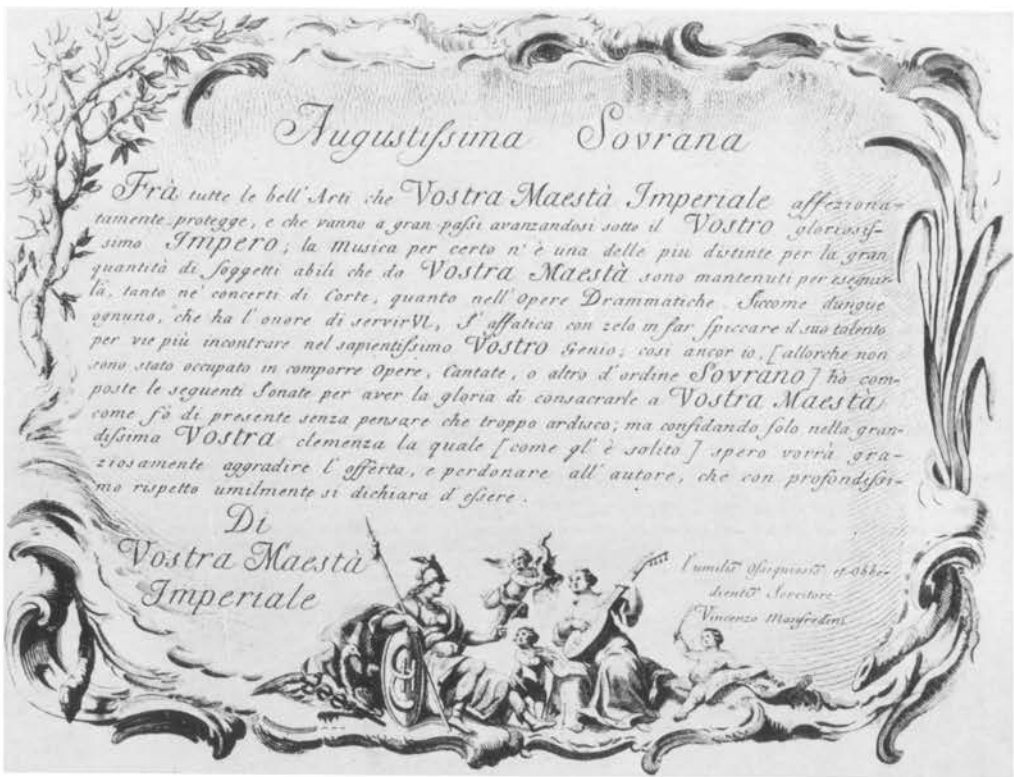 Augustiſsima Sovrana
Frà tutte le bell' Arti che Vostra Maestà Imperiale affeziona-
tamente protegge, e che vanno a gran paſsi avanzandosi sotto il Vostro gloriosiſ-
simo Impero; la musica per certo n' è una delle più distinte per la gran
quantità di ſoggetti abili che da Vostra Maestà sono mantenuti per eseguir-
la, tanto ne' concerti di Corte, quanto nell' Opere Drammatiche. Siccome dunque
ognuno, che ha l' onore di servirVI, s' affatica con zelo in far ſpiccare il suo talento
per vie più incontrare nel sapientiſsimo Vostro Genio; così ancor io, [allorche non
sono stato occupato in comporre Opere, Cantate, o altro d' ordine Sovrano] hò com-
poste le seguenti Sonate per aver la gloria di consacrarle a Vostra Maestà
come fò di presente senza pensare che troppo ardisco; ma confidando ſolo nella gran-
diſsima Vostra clemenza la quale [come gl' è solito] spero vorrà gra-
ziosamente aggradire l' offerta, e perdonare all' autore, che con profondiſsi-
mo rispetto umilmente si dichiara d' eſsere.
Di
Vostra Maestà
Imperiale
l' umilis̄ Oſsequiosis̄ et Obbe-
dientis̄ Servitore
Vincenzo Manfredini